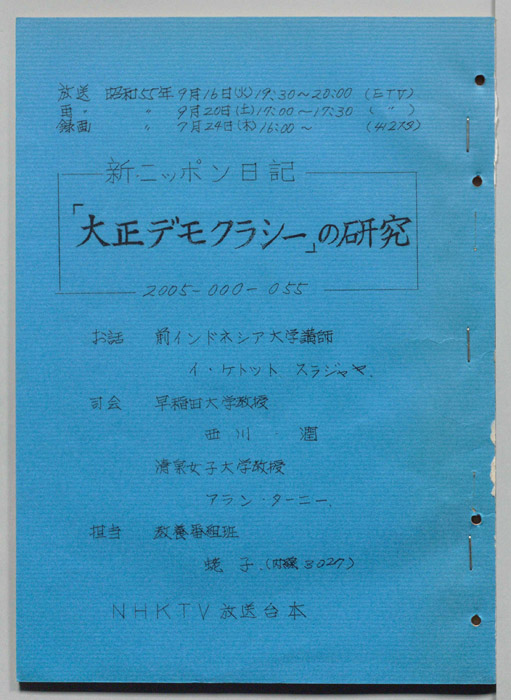 放送 昭和55年9月16日(火)19:30～20:00 (ETV)
再〃 〃 9月20日(土)17:00～17:30 (〃)
録画 〃 7月24日(木)16:00～ (412スタ)
新・ニッポン日記
「大正デモクラシー」の研究
2005-000-055
お話 前インドネシア大学講師
イ・ケトット スラジャヤ
司会 早稲田大学教授
西川 潤
清泉女子大学教授
アラン・ターニー
担当 教養番組班
蛯子(内線8027)
NHKTV放送台本